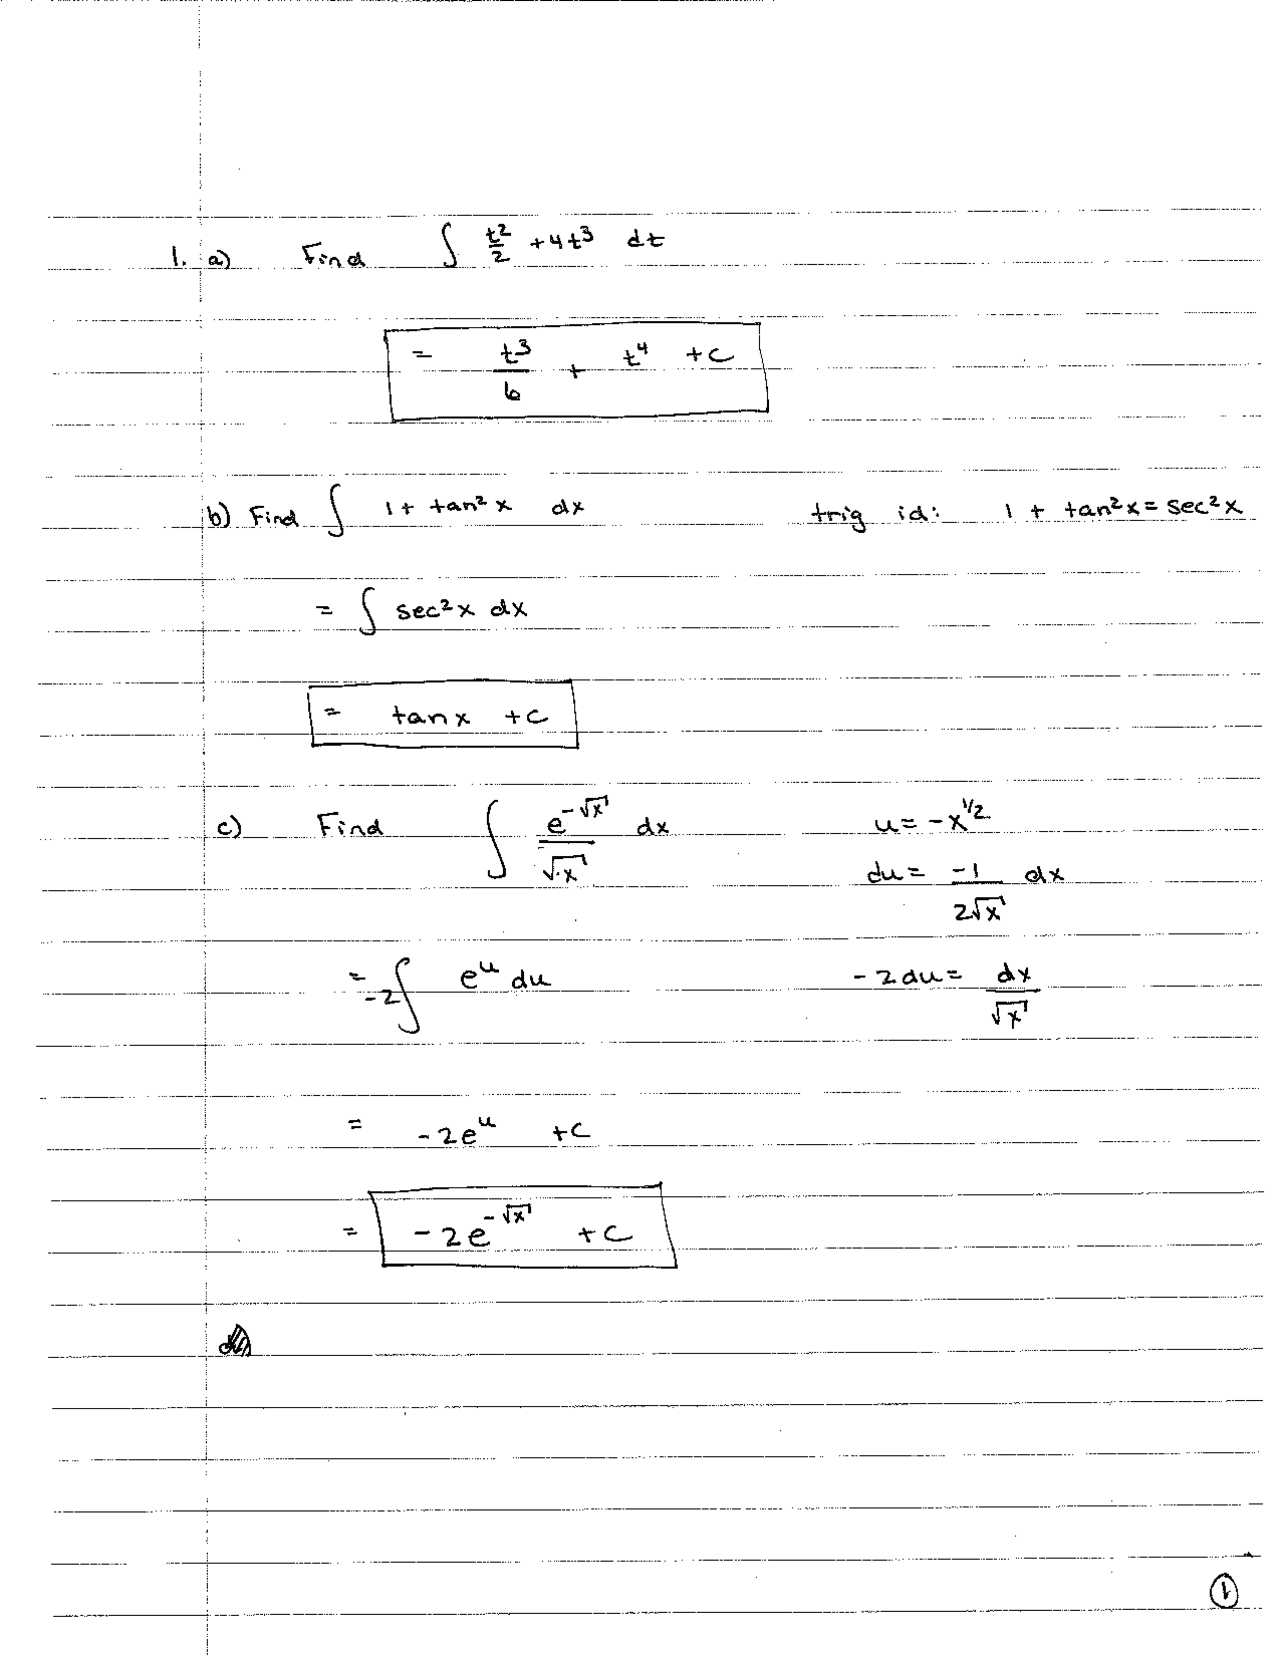 1. a) Find ∫ t²/2 + 4t³ dt
= t³/6 + t⁴ + C
b) Find ∫ 1 + tan² x dx trig id: 1 + tan²x = sec²x
= ∫ sec²x dx
= tan x + C
c) Find ∫ e^(-√x)/√x dx u = -x^(1/2)
du = -1/(2√x) dx
= -2∫ e^u du -2du = dx/√x
= -2e^u + C
= -2e^(-√x) + C
1